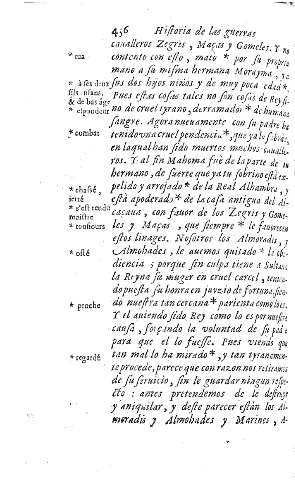 436 Historia de las guerras
cavalleros Zegris, Maças y Gomeles. Y no
* tua
contento con esto, mato * por su propria
mano a su misma hermana Morayma, y a
* à ses deux
sus dos hijos niños y de muy poca edad *.
fils, nisans,
Pues estas cosas tales no son cosas de Rey si-
& de bas âge
no de cruel tyrano, derramador * de humana
* espandeur
sangre. Agora nuevamente con su padre ha
* combat
tenido una cruel pendencia *, que ya lo sabeis,
en la qual han sido muertos muchos cavalle-
ros. Y al fin Mahoma fue de la parte de su
hermano, de suerte que ya tu sobrino està ex-
* chassé,
pelido y arrojado * de la Real Alhambra, y
jetté
està apoderado * de la casa antigua del Bi-
* s'est rendu
caçaua, con favor de los Zegris y Gome-
maistre
* tousjours
les y Maças, que siempre * le favorecen
estos linages. Nosotros los Almoradis, y
* osté
Almohades, le avemos quitado * la obe-
diencia; porque sin culpa tiene a Sultana
la Reyna su muger en cruel carcel, tenien-
do puesta su honra en juyzio de fortuna, sien-
* proche
do nuestra tan cercana * parienta como lo es.
Y el aviendo sido Rey como lo es por nuestra
causa, forçando la voluntad de su padre
para que el lo fuesse. Pues viendo que
* regardé
tan mal lo ha mirado *, y tan tyranamen-
te procede, parece que con razon nos retiramos
de su servicio, sin le guardar ningun respe-
cto: antes pretendemos de le destruyr
y aniquilar, y deste parecer están los Al-
moradis y Almohades y Marines, A-